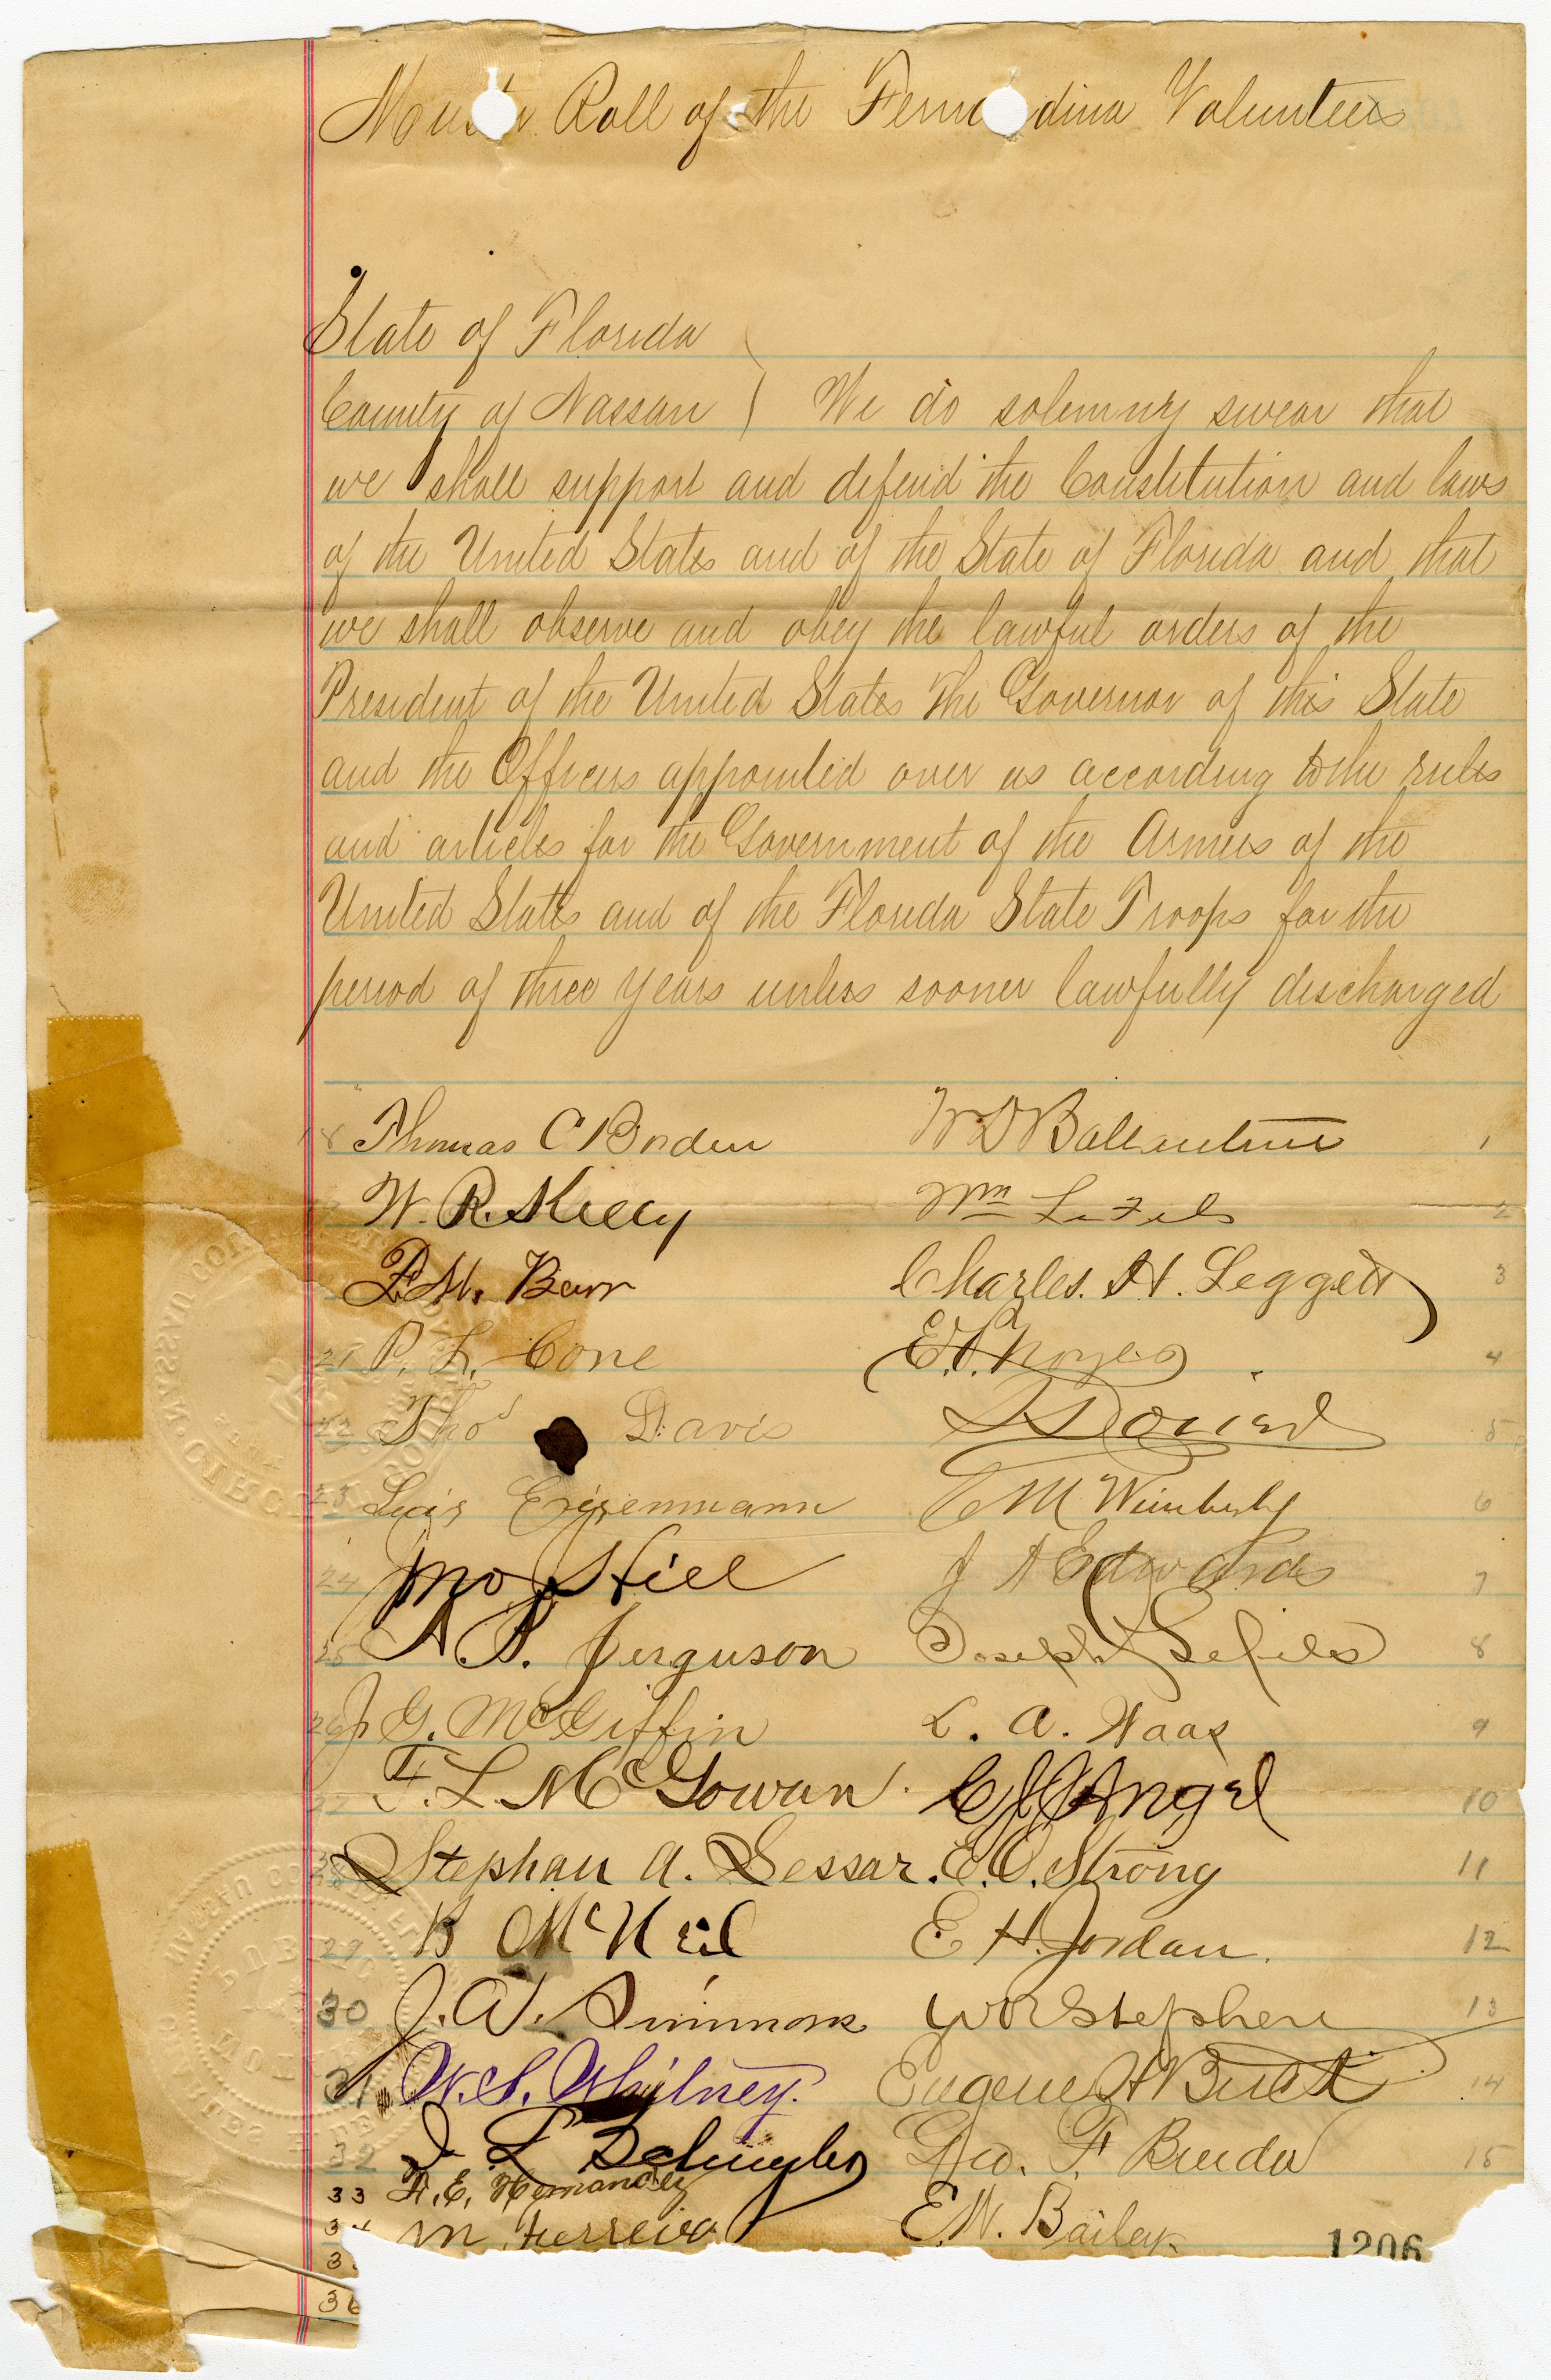 Muster Roll of the Fernandina Volunteers
State of Florida
County of Nassau ) We do solemnly swear that
we shall support and defend the Constitution and laws
of the United States and of the State of Florida and that
we shall observe and obey the lawful orders of the
President of the United States The Governor of this State
and the Officers appointed over us according to the rules
and articles for the Government of the Armies of the
United States and of the Florida State Troops for the
period of three years unless sooner lawfully discharged
18 Thomas C Borden W D Ballentine 1
W. R. Kelly Wm Lefils 2
Charles. H. Leggett 3
21 P. L. Cone 4
22 Thos Davis 5
23 M Wimberly 6
24 Jno Hill J A Edwards 7
25 A. P. Ferguson Joseph Lefils 8
26 J G. McGiffin L. A. Waas 9
27 F. L. McGowan. Angel 10
28 Stephan A. Sessar. E. O. Strong 11
29 B McNeil E H. Jordan. 12
30 J. W. Simmons W R Stephens 13
31 W. S. Whitney. Eugene H Buck 14
32 Geo. F. 15
33 F. E. Hernandez
34 M Ferreira E. W. Bailey
3
36
1206
PUBLIC